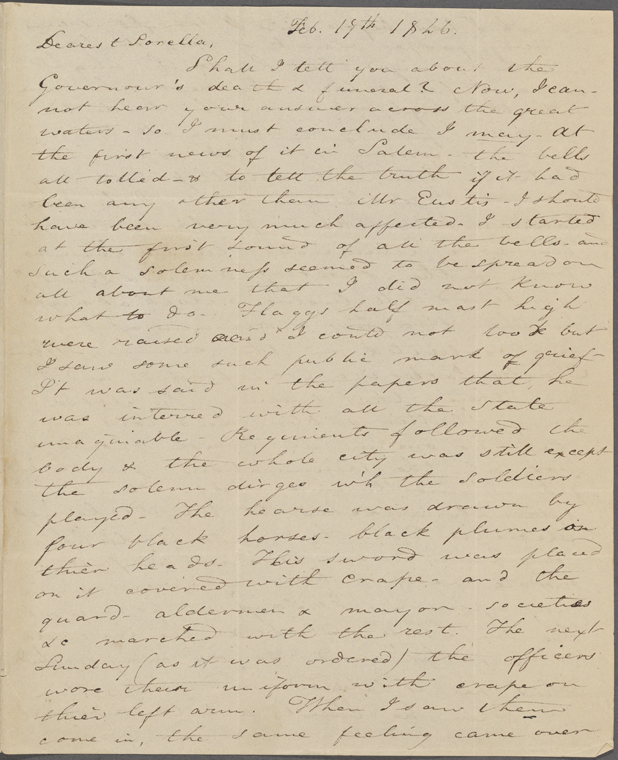 Feb. 19th 1826.
Dearest Sorella,
Shall I tell you about the
Governour's death & funeral? Now, I can-
not hear your answer across the great
waters - so I must conclude I may - At
the first news of it in Salem - the bells
all tolled - & to tell the truth if it had
been any other than Mr Eustis - I should
have been very much affected. I started
at the first sound of all the bells - and
such a solemness seemed to be spread on
all about me that I did not know
what to do - Flaggs half mast high
were raised and I could not look but
I saw some such public mark of grief -
I't was said in the papers that he
was interred with all the State
imaginable - Regiments followed the
body & the whole city was still except
the solemn dirges wh the soldiers
played - The hearse was drawn by
four black horses - black plumes on
thier heads - His sword was placed
on it covered with crape - and the
guard - aldermen & mayor - societies
&c marched with the rest. The next
Sunday (as it was ordered) the officers
wore their uniform with crape on
thier left arm. When I saw them
come in, the same feeling came over